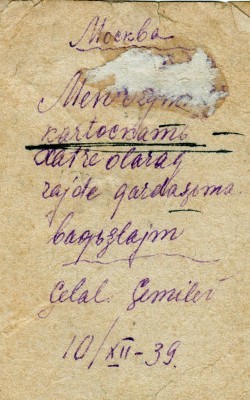 Москва
Men
kartockamь
xatre olaraq
qardaşьma
baqьşlajm
Celal. Cemilev
10/XII-39.